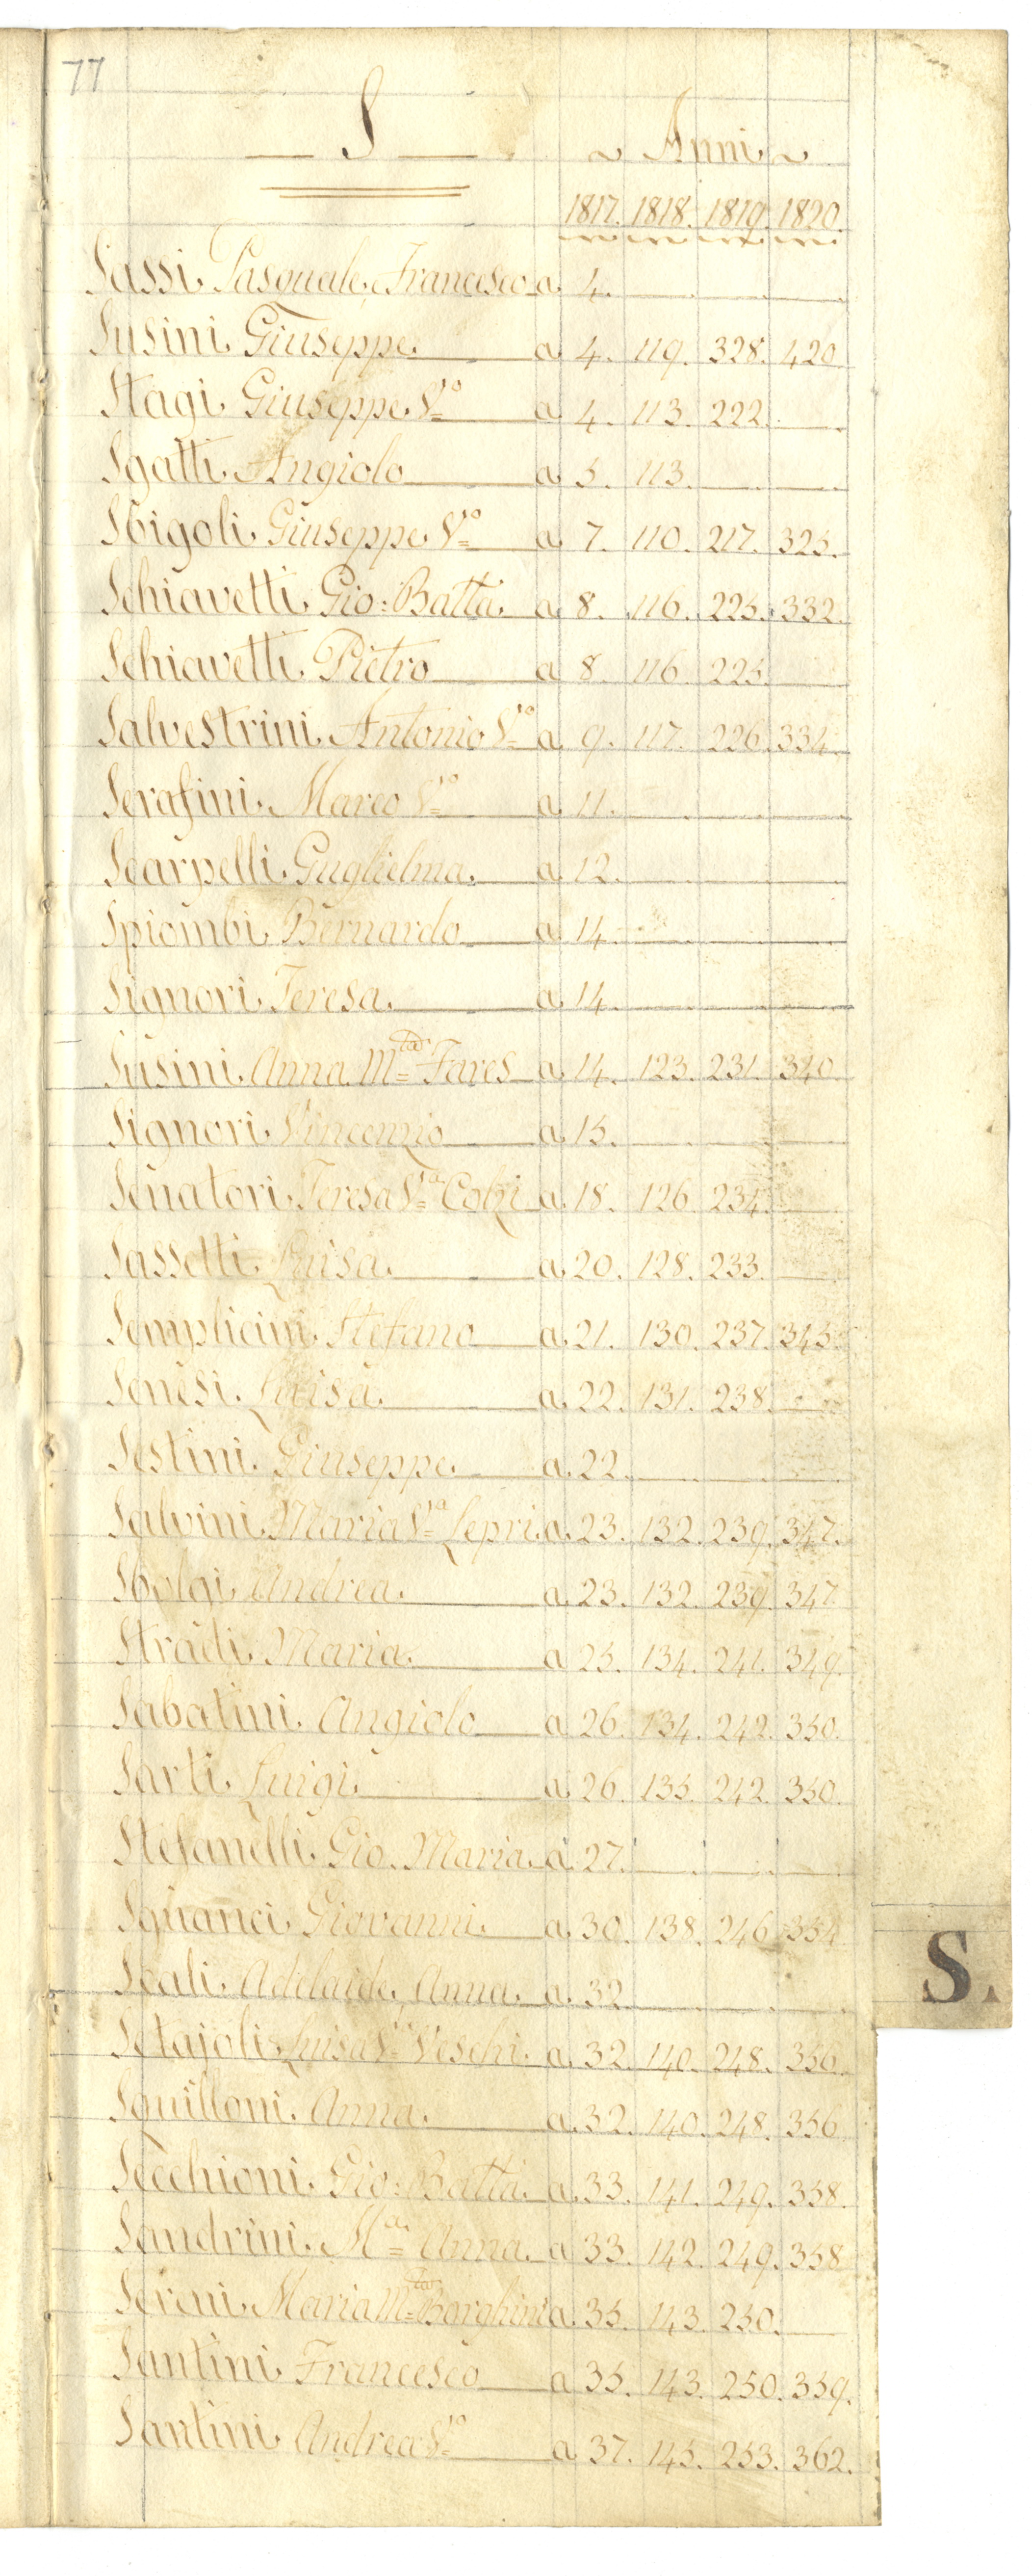 77
S ~ Anni ~
1817. 1818. 1819. 1820.
Sassi. Pasquale. Francesco a 4.
Susini. Giuseppe. a 4. 119. 328. 420
Stagi. Giuseppe. Vº a 4. 113. 222.
Sgatti. Angiolo a 5. 113.
Sbigoli. Giuseppe. Vº a 7. 110. 217. 325.
Schiavetti. Gio: Batta. a 8. 116. 225. 332.
Schiavetti. Pietro a 8. 116. 225.
Salvestrini. Antonio Vº a 9. 117. 226. 334.
Serafini. Marco Vº a 11.
Scarpelli. Guglielma. a 12.
Spiombi. Bernardo a 14.
Signori. Teresa. a 14.
Susini. Anna. Mta Fares a 14. 123. 231. 340
Signori. Vincenzio a 15.
Senatori. Teresa Va Cotzi a 18. 126. 234.
Sassetti. Luisa. a 20. 128. 233.
Semplicini. Stefano a 21. 130. 237. 345.
Senesi. Luisa. a 22. 131. 238.
Sestini. Giuseppe. a 22.
Salvini. Maria Va Lepri. a 23. 132. 239. 347.
Sbolgi. Andrea. a 23. 132. 239. 347
Stradi. Maria. a 25. 134. 241. 349.
Sabatini. Angiolo a 26. 134. 242. 350.
Sarti. Luigi. a 26. 135. 242. 350.
Stefanelli. Gio. Maria. a 27.
Sguanci. Giovanni. a 30. 138. 246. 354
Scali. Adelaide. Anna. a 32
S.
Setajoli. Luisa Va Veschi. a 32. 140. 248. 356.
Squilloni. Anna. a 32. 140. 248. 356
Secchioni. Gio: Batta. a 33. 141. 249. 358.
Sandrini. Ma Anna. a 33. 142. 249. 358
Sereni. Maria Mta Borghini a 35. 143. 250.
Santini. Francesco a 35. 143. 250. 359.
Santini. Andrea Vº a 37. 145. 253. 362.